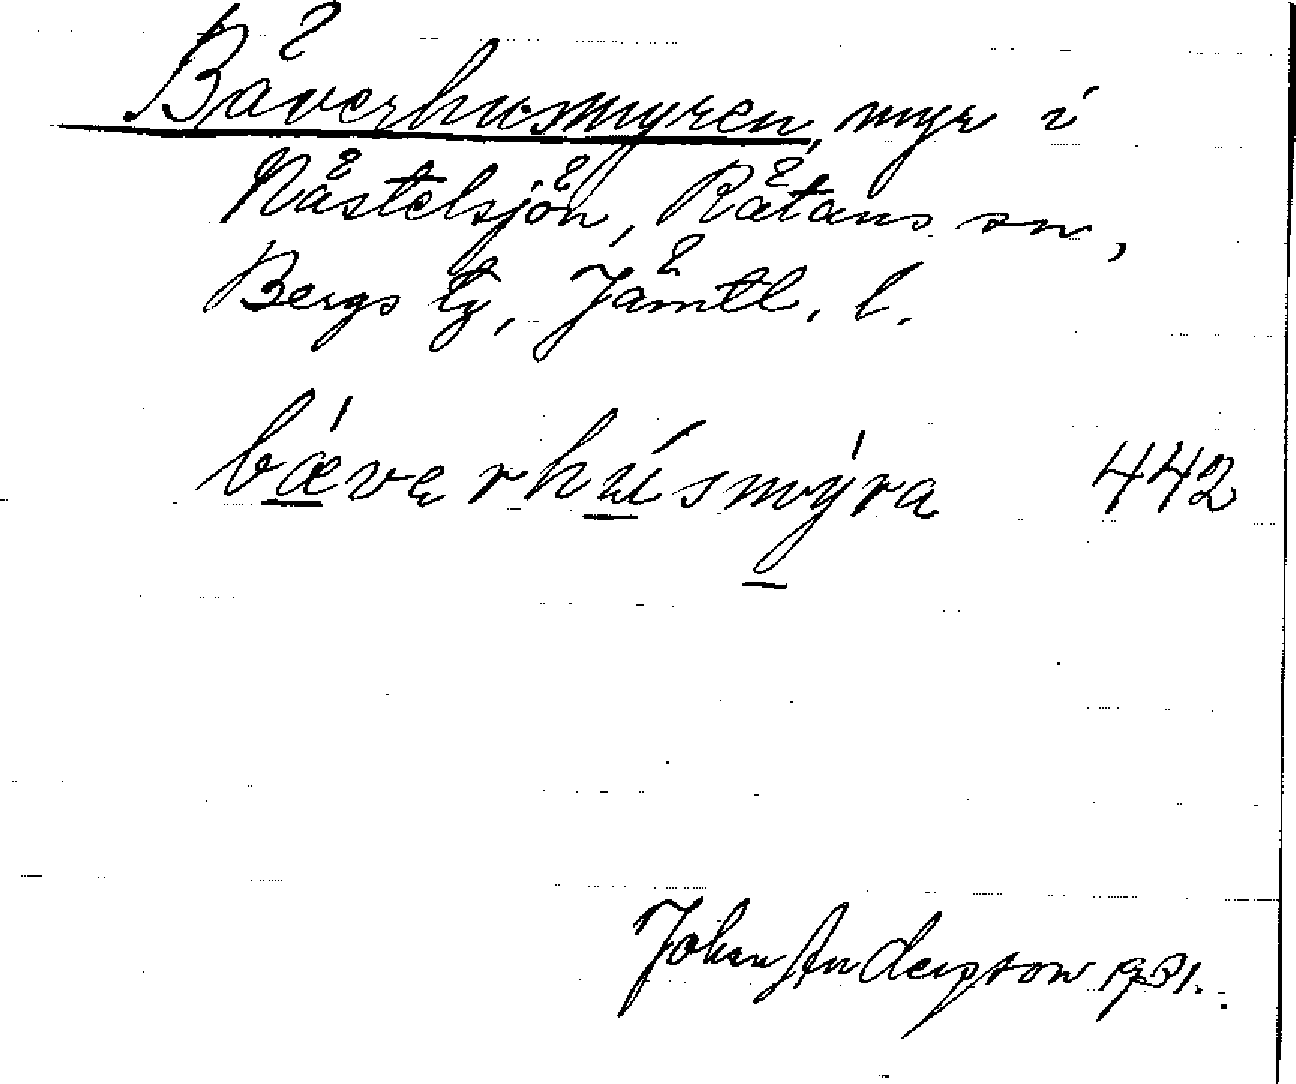 Bäverhusmyren, myr i
Nästelsjön, Rätans sn,
Bergs tg, Jämtl. l.
bǽvęrhúsmýra 442
Johan Anderson 1931.